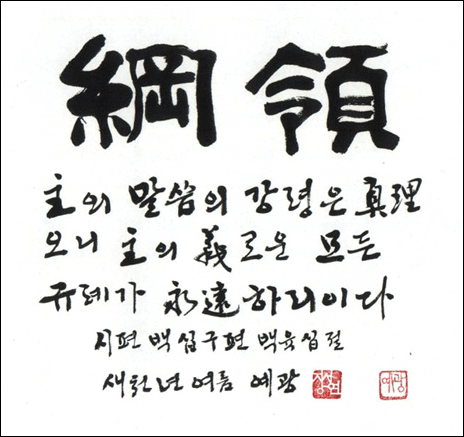 綱領
主의 말씀의 강령은 眞理
오니 主의 義로운 모든
규례가 永遠하리이다
시편 백십구편 백육십절
새천년 여름 예광
예광